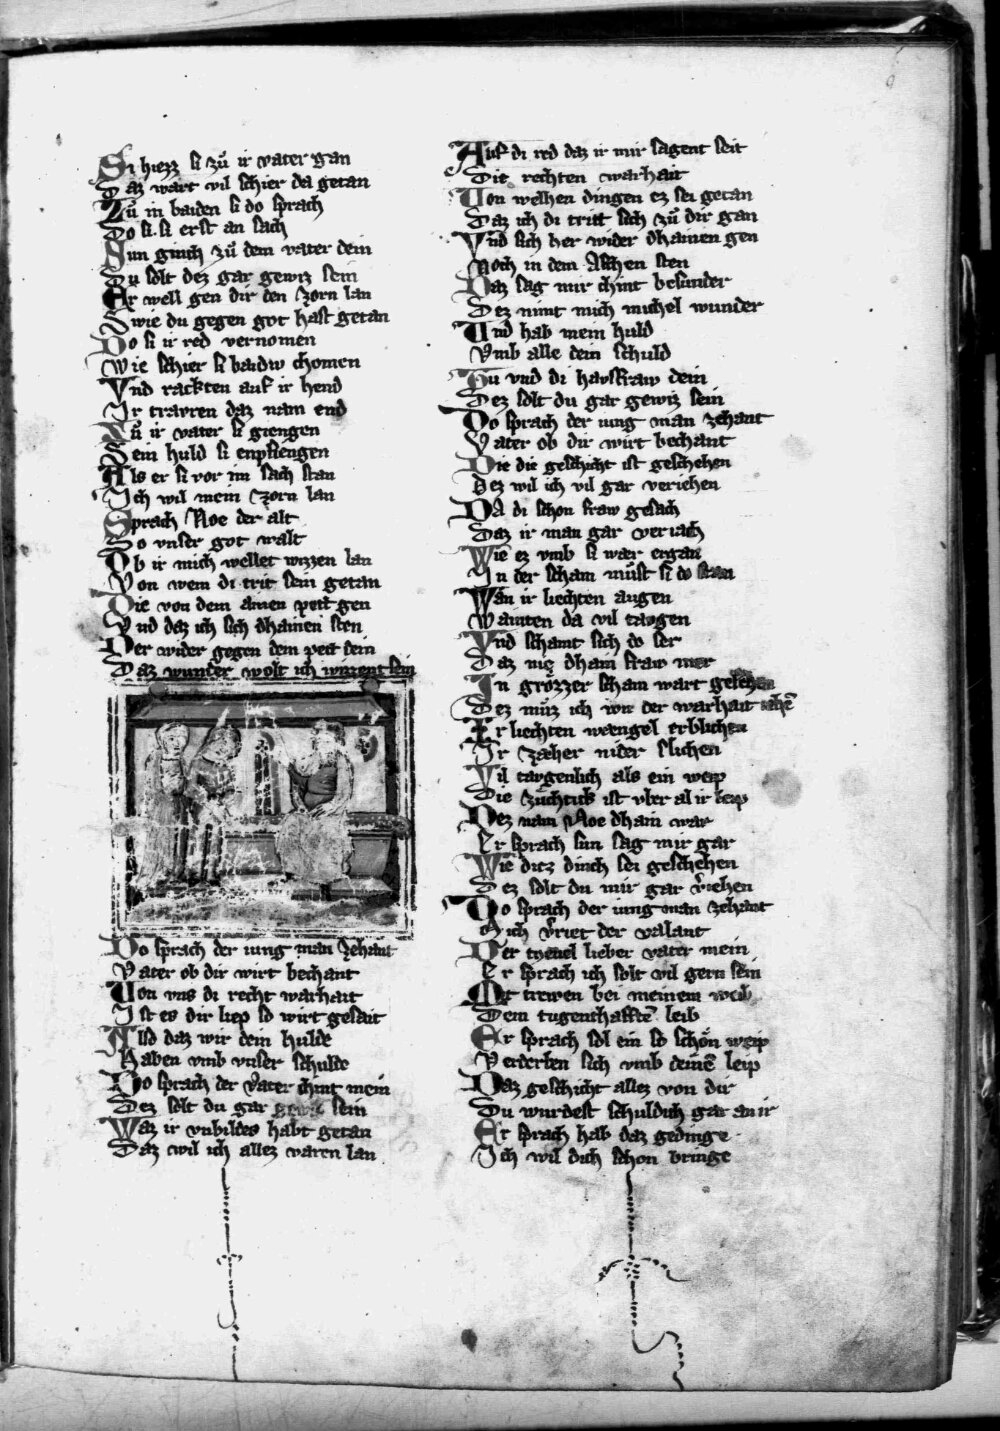 Si hiezz si zů ir vater gan
Daz wart vil schier da getan
Zů in baiden si do sprach
Do si si erst an sach
Sun ginch zů dem vater dein
Du solt dez gar gewiz sein
Er well gen dir den zorn lan
Swie du gegen got hast getan
Do si ir red vernomen
Wie schier si baidw chomen
Vnd rackten auf ir hend
Ir travren daz nam end
Zů ir vater si giengen
Sein huld si enpfiengen
Als er si vor im sach stan
Ich wil mein zorn lan
Sprach Noe der alt
So vnser got walt
Ob ir mich wellet wizzen lan
Von wem di trit sein getan
Die von dem ainen pett gen
Vnd daz ich sich dhainen sten
Der wider gegen dem pett sein
Daz wunder wolt ich wizzent sein
Do sprach der iung man zehant
Vater ob dir wirt bechant
Von vns di recht warhait
Ist es dir liep so wirt gesait
Also daz wir dein hulde
Haben vmb vnser schulde
Do sprach der vater chint mein
Dez solt du gar gewiz sein
Waz ir vnbildes habt getan
Daz wil ich allez varen lan
Auf di red daz ir mir sagent seit
Dit rechten warhait
Von welhen dingen ez sei getan
Daz ich di tritt sich zů dir gan
Vnd sich her wider dhainen gen
Noch in dem Aschen sten
Daz sag mir chint besunder
Dez nimt mich michel wunder
Vnd hab mein huld
Vmb alle dein schuld
Du vnd di havsfraw dein
Dez solt du gar gewiz sein
Do sprach der iung man zehant
Vater ob dir wirt bechant
Die die geschicht ist geschehen
Dez wil ich vil gar veriehen
Da di schon fraw gesach
Daz ir man gar veriach
Wie ez vmb si war ergan
In der scham můst si do stan
Wan ir liechten augen
Wainten da vil taugen
Vnd schamt sich do ser
Daz nie dhain fraw mer
In grözzer scham wart gesehen
Dez můz ich wir der warhait iehē
Ir liechten wengel erblichen
Ir zæher nider slichen
Vil taugenlich als ein weip
Die zůchtick ist vber al ir leip
Dez nam Noe dhain war
Er sprach sun sag mir gar
Wie ditz dinch sei geschehen
Dez solt du mir gar v̄iehen
Do sprach der iung man zehant
Mich v̄riet der valant
Der tyeuel lieber vater mein
Er sprach ich solt vil gern sein
Mit trewen bei meinem weib
Dem tugenthafftē leib
Er sprach sol ein so schön weip
Verderben sich vmb deinē leip
Daz geschicht allez von dir
Du wurdest schuldich gar an ir
Er sprach hab daz gedinge
Ich wil dich schon bringe